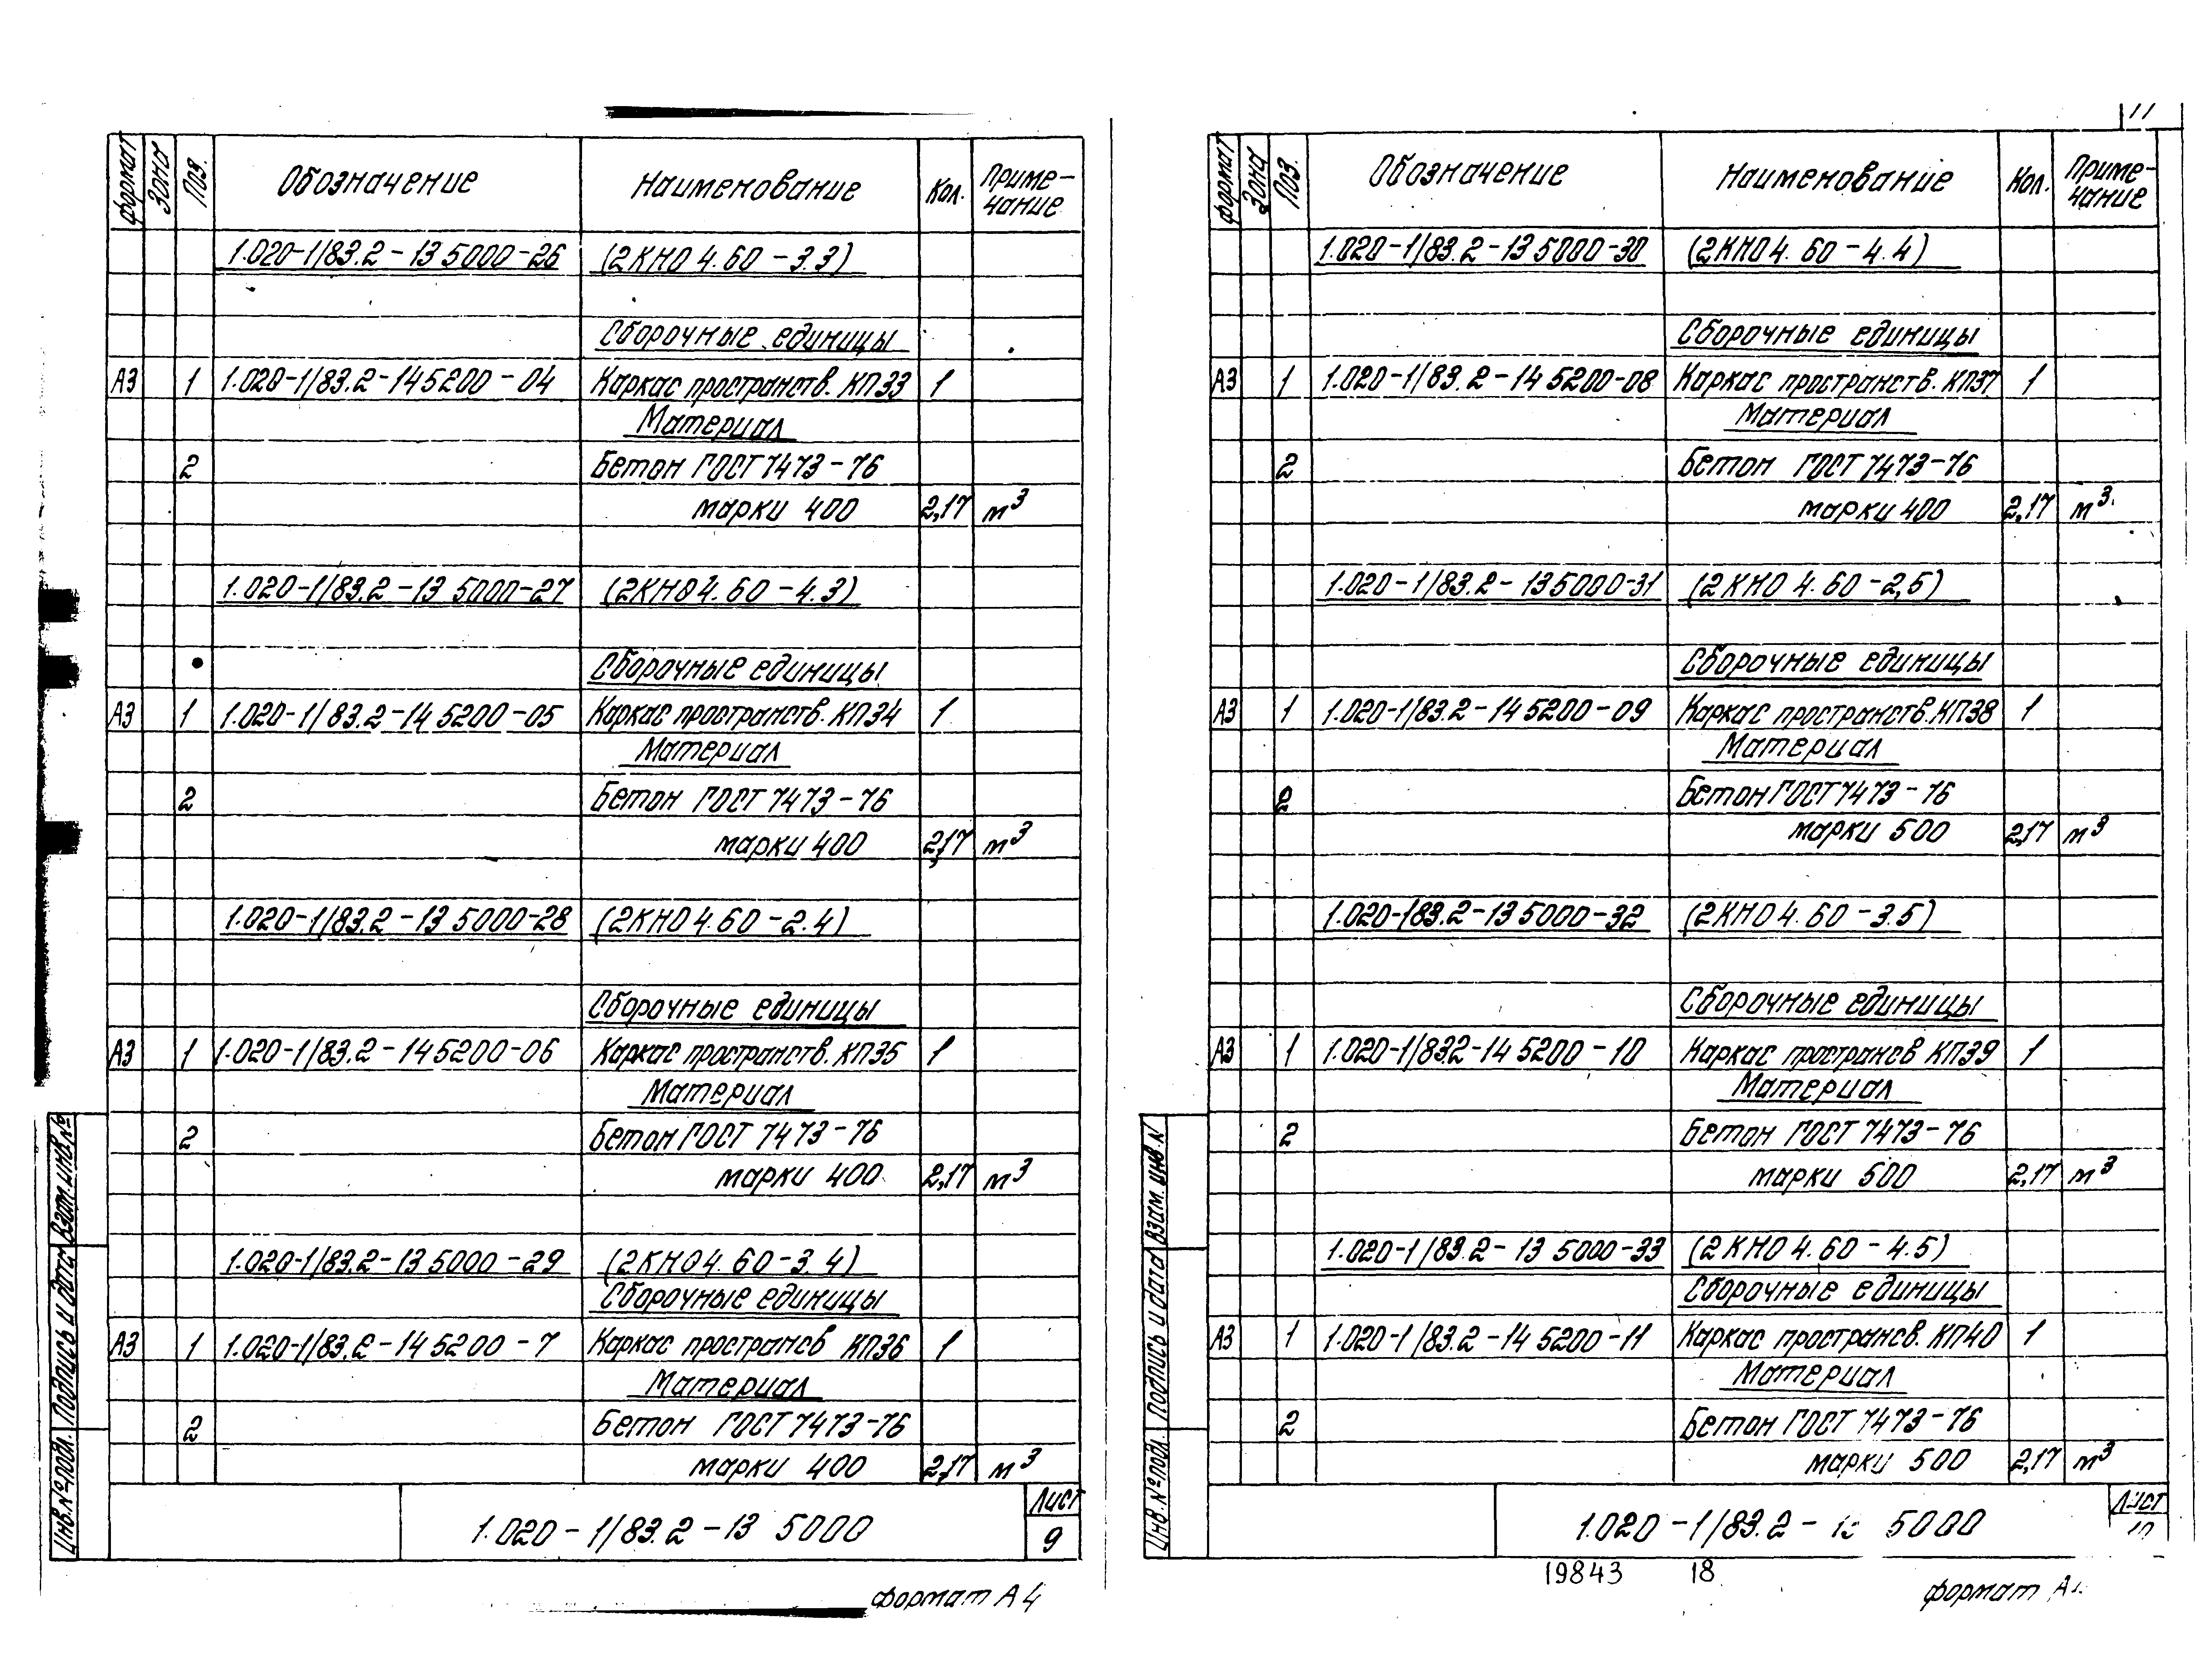 формат Зона Поз. Обозначение Наименование Кол. Приме-
чание
1.020-1/83.2-13 5000-26 (2КНО 4.60-3.3)
Сборочные единицы
А3 1 1.020-1/83.2-14 5200-04 Каркас пространств. КП33 1
Материал
2 Бетон ГОСТ 7473-76
марки 400 2,17 м³
1.020-1/83.2-13 5000-27 (2КНО 4.60-4.3)
Сборочные единицы
А3 1 1.020-1/83.2-14 5200-05 Каркас пространств. КП34 1
Материал
2 Бетон ГОСТ 7473-76
марки 400 2,17 м³
1.020-1/83.2-13 5000-28 (2КНО 4.60-2.4)
Сборочные единицы
А3 1 1.020-1/83.2-14 5200-06 Каркас пространств. КП35 1
Материал
2 Бетон ГОСТ 7473-76
марки 400 2,17 м³
1.020-1/83.2-13 5000-29 (2КНО 4.60-3.4)
Сборочные единицы
А3 1 1.020-1/83.2-14 5200-7 Каркас пространсв КП36 1
Материал
2 Бетон ГОСТ 7473-76
марки 400 2,17 м³
Инв.№ подл. Подпись и дата Взам.инв.№
1.020-1/83.2-13 5000
Лист
9
формат А4
11
формат Зона Поз. Обозначение Наименование Кол. Приме-
чание
1.020-1/83.2-13 5000-30 (2КНО 4.60-4.4)
Сборочные единицы
А3 1 1.020-1/83.2-14 5200-08 Каркас пространств. КП37 1
Материал
2 Бетон ГОСТ 7473-76
марки 400 2,17 м³
1.020-1/83.2-13 5000-31 (2КНО 4.60-2,5)
Сборочные единицы
А3 1 1.020-1/83.2-14 5200-09 Каркас пространств. КП38 1
Материал
2 Бетон ГОСТ 7473-76
марки 500 2,17 м³
1.020-1/83.2-13 5000-32 (2КНО 4.60-3.5)
Сборочные единицы
А3 1 1.020-1/83.2-14 5200-10 Каркас пространсв КП39 1
Материал
2 Бетон ГОСТ 7473-76
марки 500 2,17 м³
1.020-1/83.2-13 5000-33 (2КНО 4.60-4.5)
Сборочные единицы
А3 1 1.020-1/83.2-14 5200-11 Каркас пространсв. КП40 1
Материал
2 Бетон ГОСТ 7473-76
марки 500 2,17 м³
Инв.№ подл. Подпись и дата Взам.инв.N
1.020-1/83.2-13 5000
Лист
10
19843 18
формат